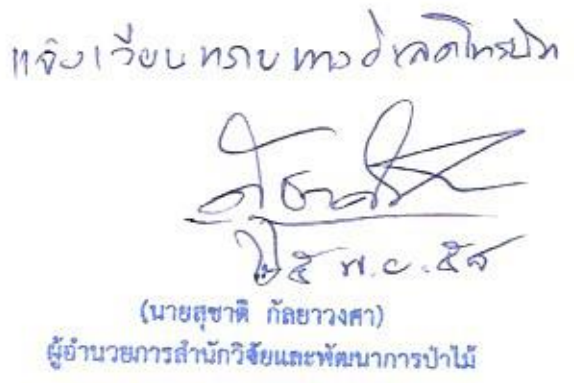 แจ้งเวียนทราบทางอิเลคโทรนิก
๒๕ พ.ย. ๕๘
(นายสุชาติ กัลยาวงศา)
ผู้อำนวยการสำนักวิจัยและพัฒนาการป่าไม้